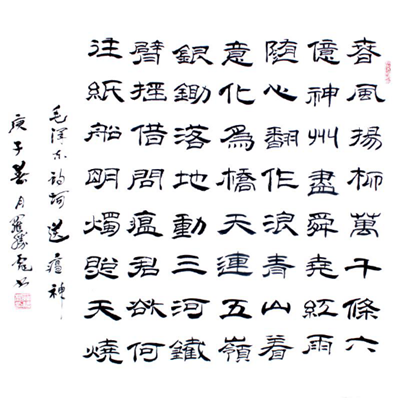 春風揚柳萬千條六
億神州盡舜堯紅雨
随心翻作浪青山着
意化為橋天連五嶺
銀鋤落地動三河鐵
臂摇借問瘟君欲何
往紙船明燭照天燒
毛澤东詩詞送瘟神
庚子春月